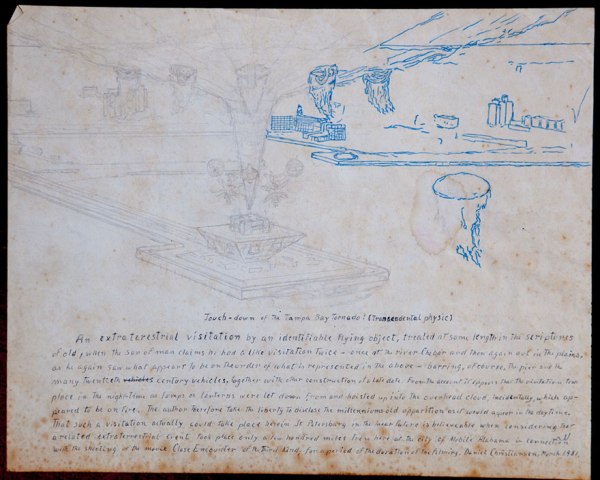 Touch-down of the Tampa Bay Tornado! (Transendental physic)
An extraterestrial visitation by an identifiable flying object, treated at some length in the scriptures
of old, when the son of man claims he had a like visitation twice - once at the river Chebar and then again out in the plains,
as he again saw what appeart to be on the order of what is represented in the above - barring, of course, the pier and the
many twenteth vehicles century vehicles, together with other construction of a late date. From the account it appears that the visitation took
place in the night-time as lamps or lanterns were let down from and hoisted up into the overhead cloud, incidentally, which ap-
peared to be on fire. The author therefore take the liberty to disclose the millenniums old apparition as it would appear in the daytime.
That such a visitation actually could take place herein St Petersburg in the near future is believable when considering that
a related extraterrestrial event took place only a few hundred miles from here at the City of Mobile Alabama in connection
with the shooting of the movie Close Encounder of the Third Kind, for a period of the duration of the filming. Daniel Christiansen, March 1981.